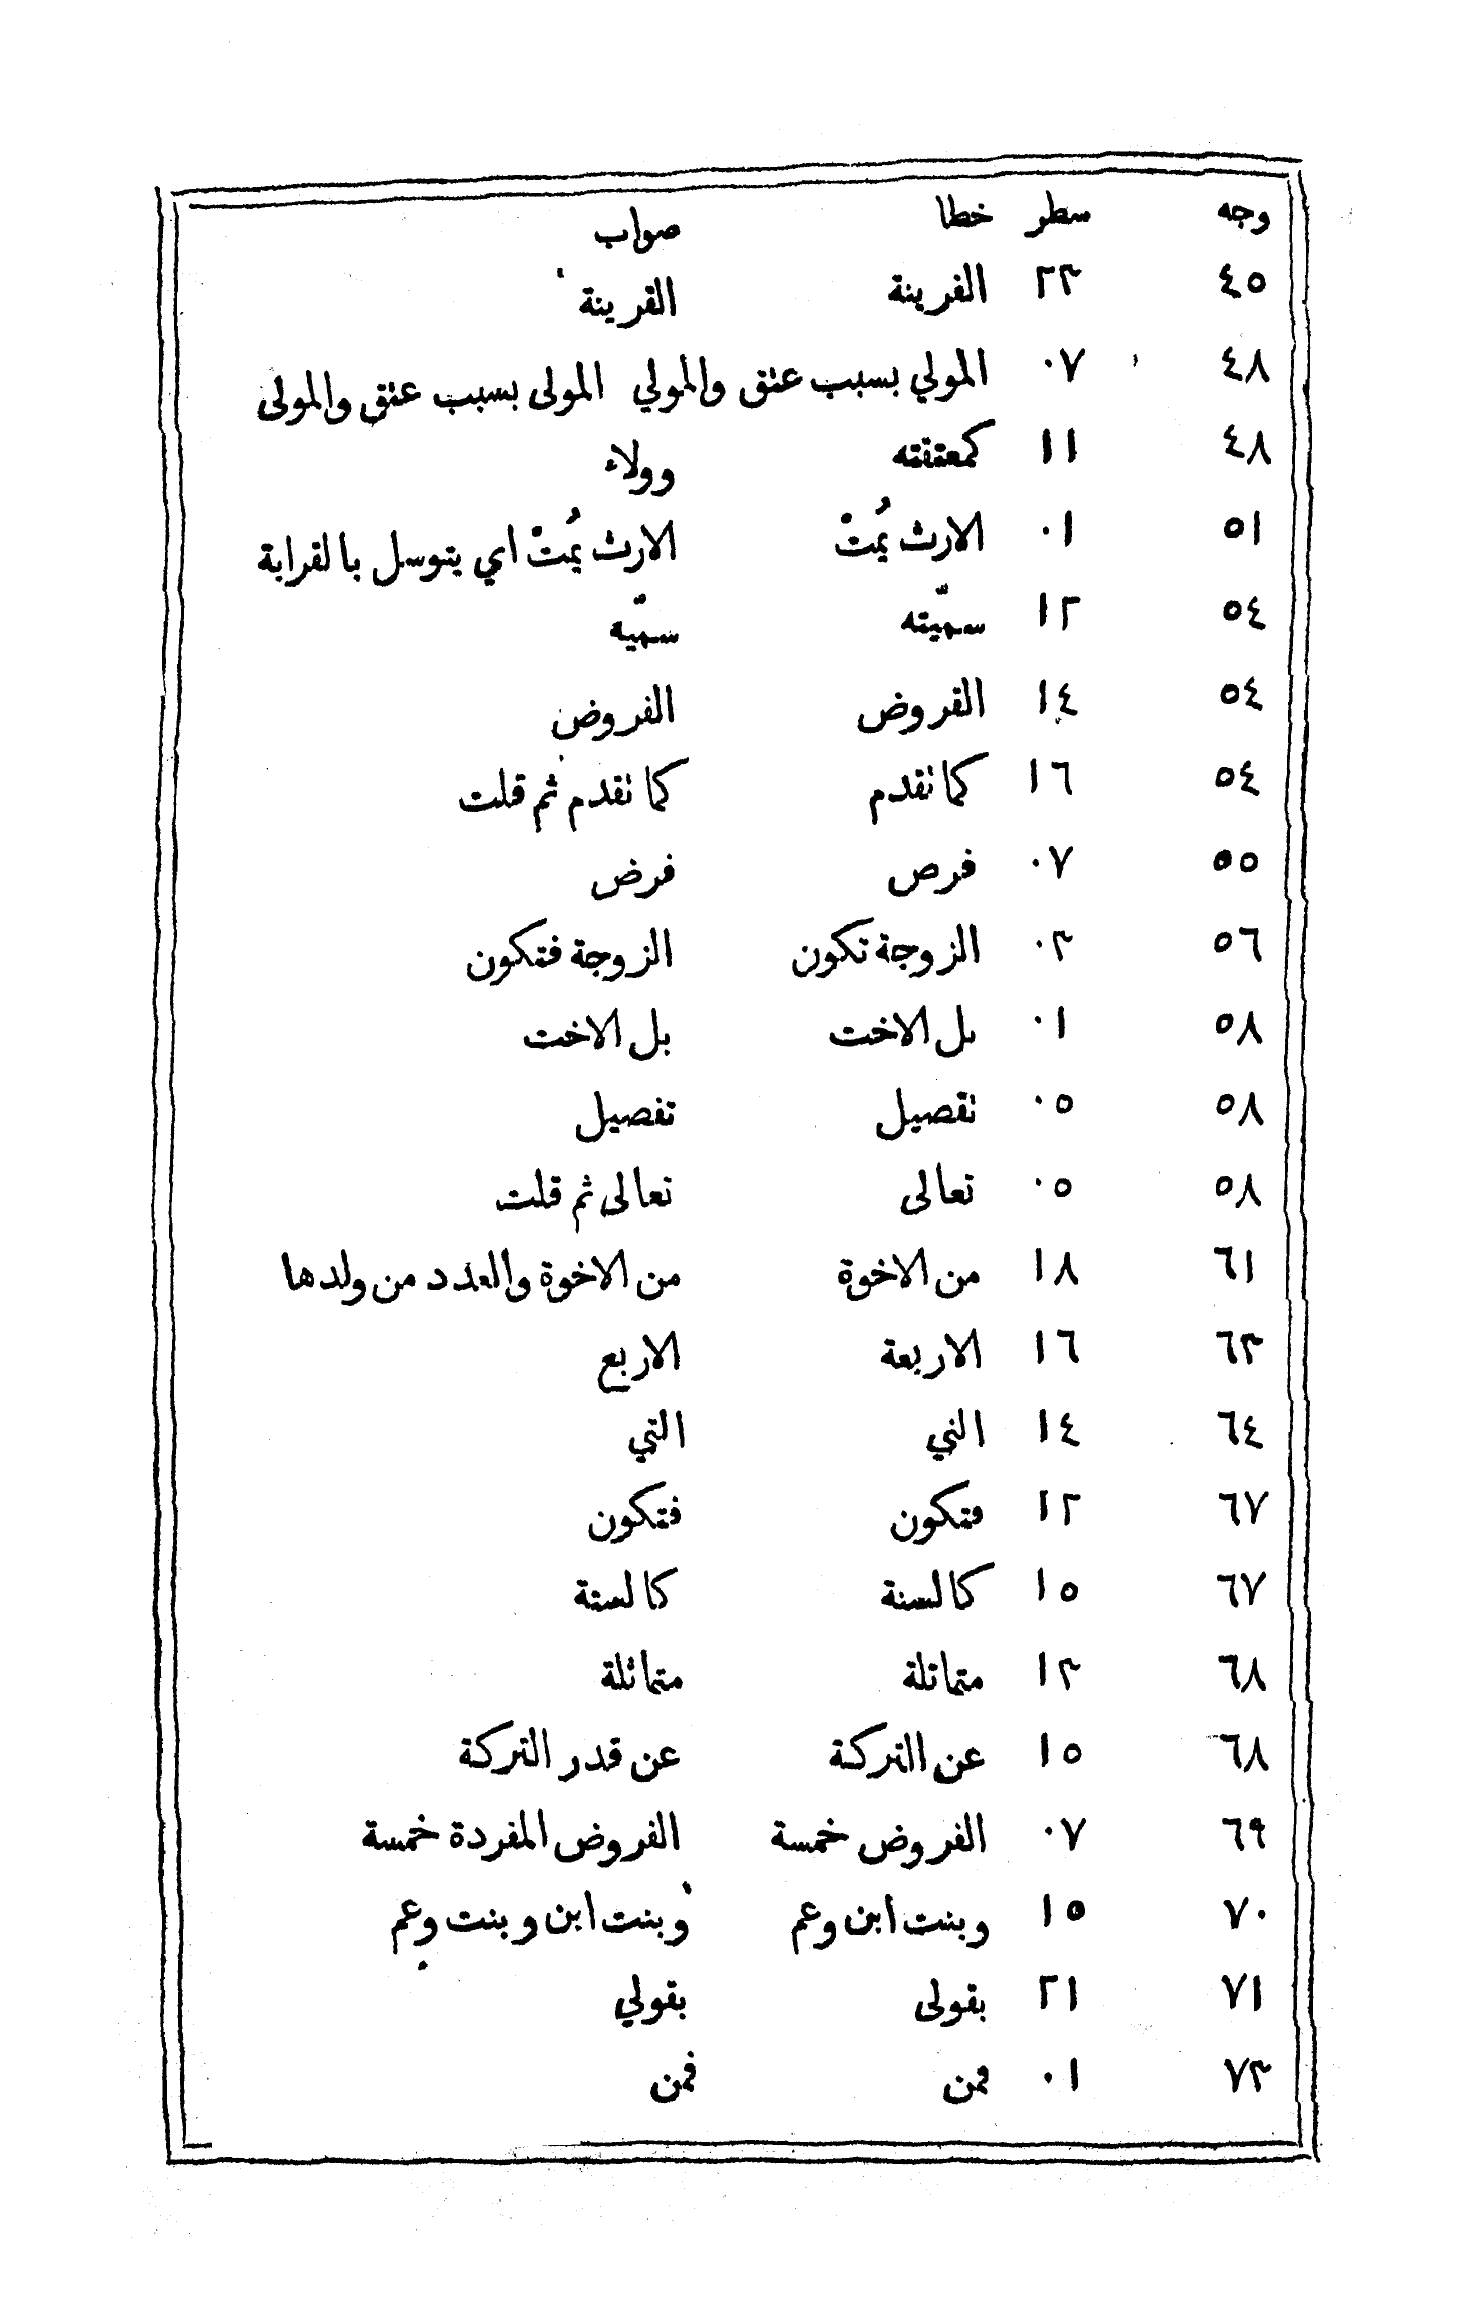 وجه سطر خطا صواب
٤٥ ٢٣ الفرينة القرينة
٤٨ ٠٧ المولي بسبب عتق والمولي المولى بسبب عتق والمولى
٤٨ ١١ كمعتقته وولاء
٥١ ٠١ الارث يُمتْ الارث يُمتْ اي يتوسل بالقرابة
٥٤ ١٢ سميّته سميّه
٥٤ ١٤ القروض الفروض
٥٤ ١٦ كما تقدم كما تقدم ثم قلت
٥٥ ٠٧ فرص فرض
٥٦ ٠٣ الزوجة تكون الزوجة فتكون
٥٨ ٠١ ٮل الاخت بل الاخت
٥٨ ٠٥ تقصيل تفصيل
٥٨ ٠٥ تعالى تعالى ثم قلت
٦١ ١٨ من الاخوة من الاخوة والعدد من ولدها
٦٣ ١٦ الاربعة الاربع
٦٤ ١٤ الني التي
٦٧ ١٢ ڡتكون فتكون
٦٧ ١٥ كالسنة كالستة
٦٨ ١٣ متماتلة متماثلة
٦٨ ١٥ عن التركة عن قدر التركة
٦٩ ٠٧ الفروض خمسة الفروض المفردة خمسة
٧٠ ١٥ وبنت ابن وعم وبنت ابن وبنت وعم
٧١ ٢١ بقولى بقولي
٧٣ ٠١ ڡمن فمن